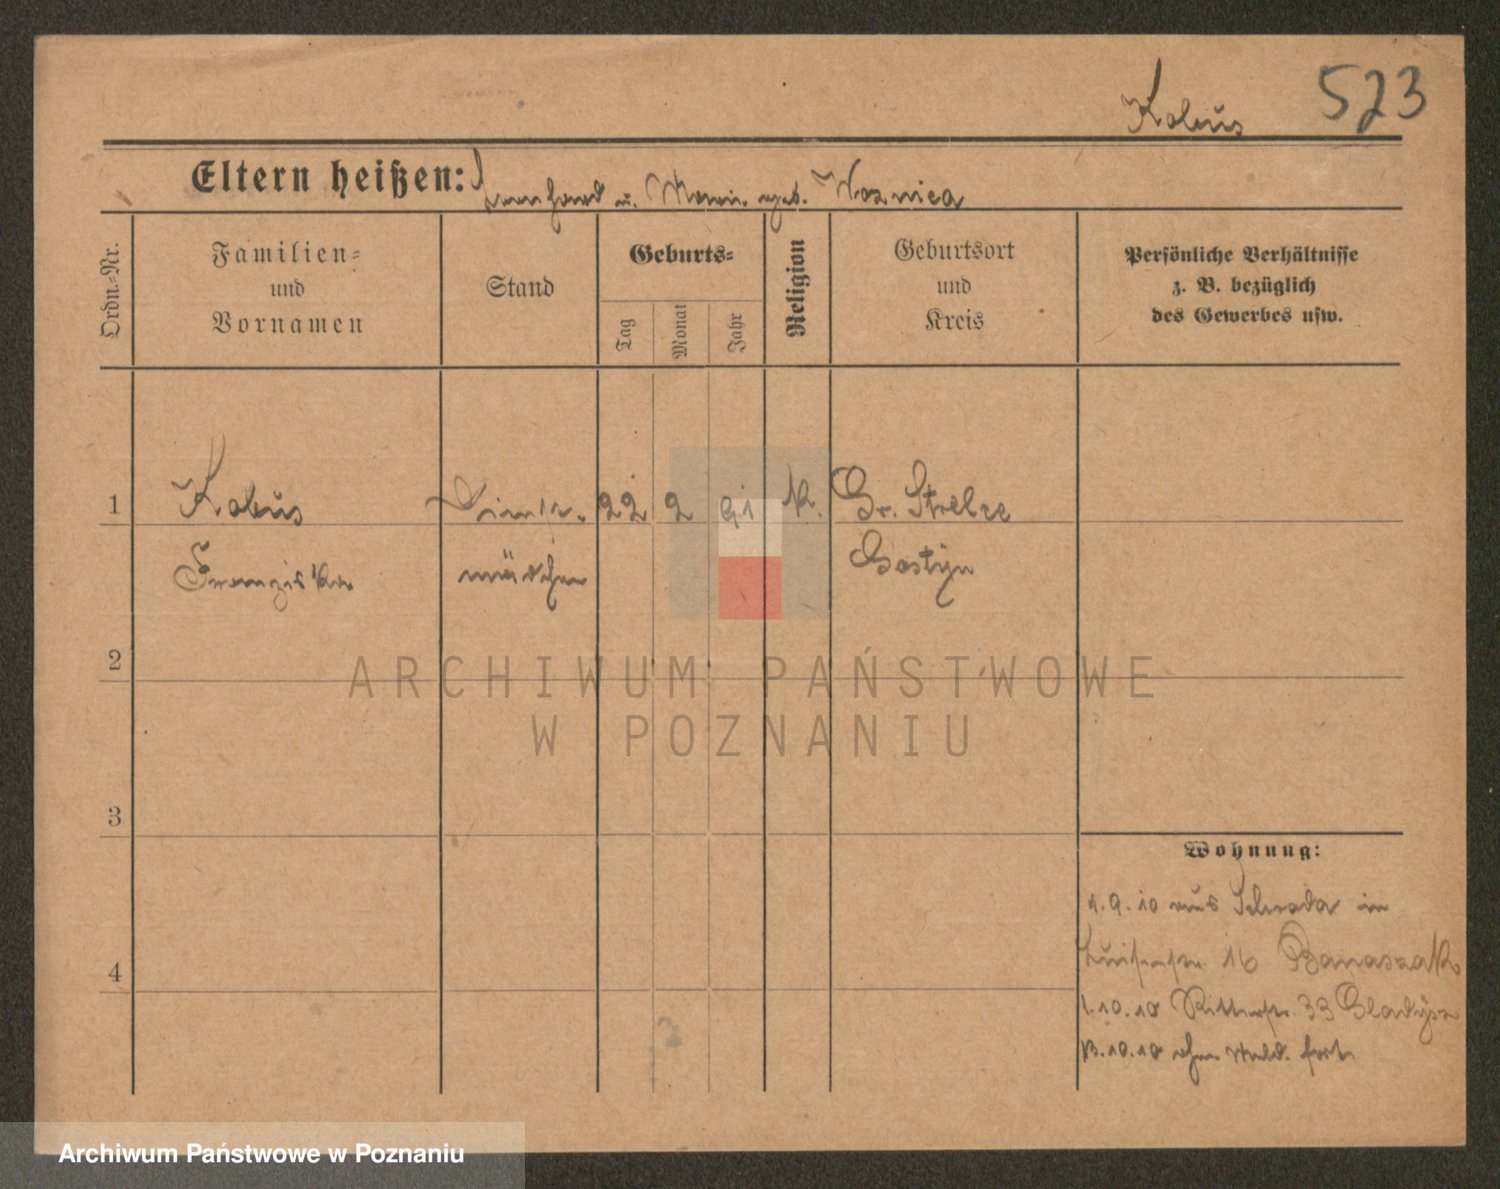 Kobus 523
Eltern heißen: Leonhard u. Marie geb. Woznica
Ordn.-Nr.
Familien-
und
Vornamen
Stand
Geburts-
Tag
Monat
Jahr
Religion
Geburtsort
und
Kreis
Persönliche Verhältnisse
z. B. bezüglich
des Gewerbes usw.
1 Kobus Dienst- 22 2 91 k. Gr. Strelze
Franziska mädchen Gostyn
2
3
4
Wohnung:
1.9.10 aus Schroda in
Luisenstr. 16 Banaszak
1.10.10 Ritterstr. 33 Gladysz
13.10.10 ohne Meld. fort
ARCHIWUM PAŃSTWOWE
W POZNANIU
Archiwum Państwowe w Poznaniu